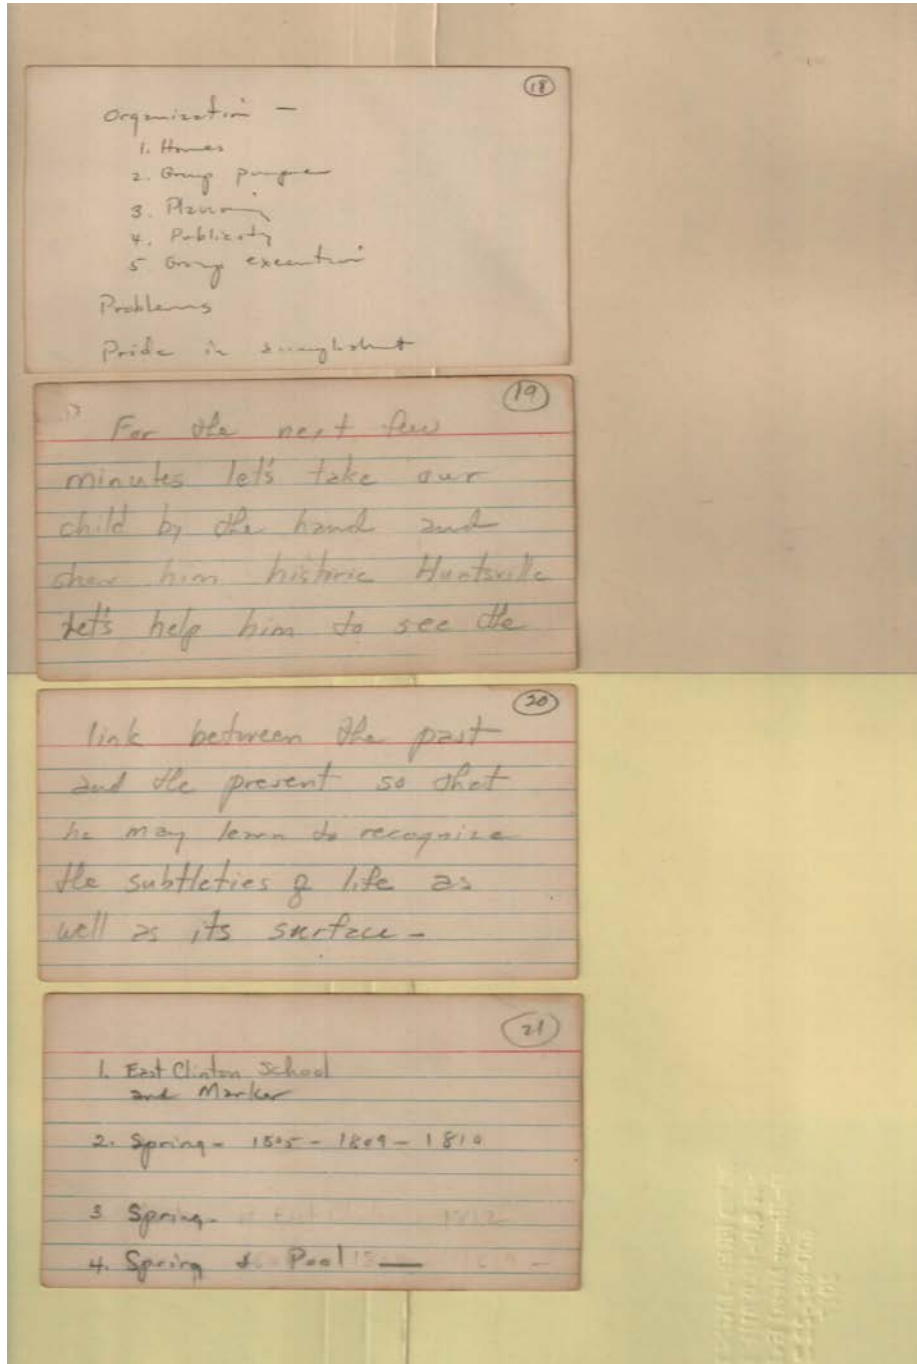 18
Organization —
1. Homes
2. Group purpose
3. Planning
4. Publicity
5 Group execution
Problems
Pride in
19
For the next few
minutes let's take our
child by the hand and
show him historic Huntsville
Let's help him to see the
20
link between the past
and the present so that
he may learn to recognize
the subtleties of life as
well as its surface —
21
1. East Clinton School
and Marker
2. Spring - 1805 - 1809 - 1810
3 Spring -
4. Spring & Pool —